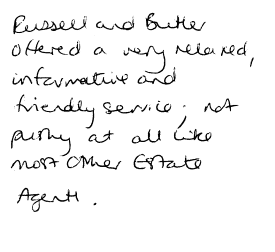 Russell and Butler
offered a very relaxed,
informative and
friendly service; not
pushy at all like
most other Estate
Agents.